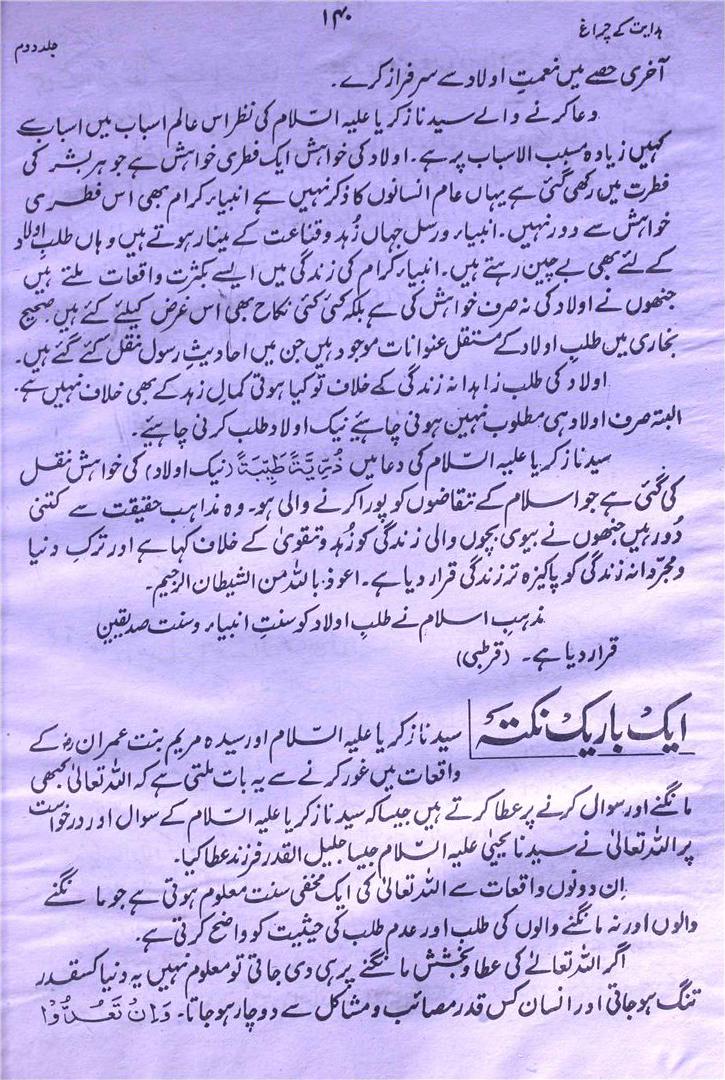 ہدایت کے چراغ
۱۴۰
جلد دوم
آخری حصے میں نعمتِ اولاد سے سرفراز کرے۔
دعا کرنے والے سیدنا زکریا علیہ السّلام کی نظر اس عالم اسباب میں اسباب سے
کہیں زیادہ مسبب الاسباب پر ہے۔ اولاد کی خواہش ایک فطری خواہش ہے جو ہر بشر کی
فطرت میں رکھی گئی ہے یہاں عام انسانوں کا ذکر نہیں ہے انبیاء کرام بھی اس فطری
خواہش سے دور نہیں۔ انبیاء و رسل جہاں زُہد و قناعت کے مینار ہوتے ہیں وہاں طلبِ اولاد
کے لئے بھی بے چین رہتے ہیں۔ انبیاء کرام کی زندگی میں ایسے بکثرت واقعات ملتے ہیں
جنھوں نے اولاد کی نہ صرف خواہش کی ہے بلکہ کئی کئی نکاح بھی اس غرض کیلئے کئے ہیں صحیح
بخاری میں طلبِ اولاد کے مستقل عنوانات موجود ہیں جن میں احادیثِ رسول نقل کئے گئے ہیں۔
اولاد کی طلب زاہدانہ زندگی کے خلاف تو کیا ہوتی کمالِ زہد کے بھی خلاف نہیں ہے۔
البتہ صرف اولاد ہی مطلوب نہیں ہونی چاہیے نیک اولاد طلب کرنی چاہئے۔
سیدنا زکریا علیہ السّلام کی دعا میں ذُرِّيَّتًا طَيِّبَةً (نیک اولاد) کی خواہش نقل
کی گئی ہے جو اسلام کے تقاضوں کو پورا کرنے والی ہو۔ وہ مذاہب حقیقت سے کتنی
دُور ہیں جنھوں نے بیوی بچوں والی زندگی کو زُہد و تقویٰ کے خلاف کہا ہے اور ترکِ دنیا
و مجرّدانہ زندگی کو پاکیزہ تر زندگی قرار دیا ہے۔ اعوذ باللہ من الشیطان الرجیم۔
مذہبِ اسلام نے طلبِ اولاد کو سنتِ انبیاء و سنت صدیقین
قرار دیا ہے۔ (قرطبی)
ایک باریک نکتہ
سیدنا زکریا علیہ السّلام اور سیدہ مریم بنت عمران رضؓ کے
واقعات میں غور کرنے سے یہ بات ملتی ہے کہ اللہ تعالیٰ کبھی
مانگنے اور سوال کرنے پر عطا کرتے ہیں جیسا کہ سیدنا زکریا علیہ السّلام کے سوال اور درخواست
پر اللہ تعالیٰ نے سیدنا یحییٰ علیہ السّلام جیسا جلیل القدر فرزند عطا کیا۔
اِن دونوں واقعات سے اللہ تعالیٰ کی ایک مخفی سنت معلوم ہوتی ہے جو مانگنے
والوں اور نہ مانگنے والوں کی طلب اور عدم طلب کی حیثیت کو واضح کرتی ہے۔
اگر اللہ تعالےٰ کی عطا و بخشش مانگنے پر ہی دی جاتی تو معلوم نہیں یہ دنیا کسقدر
تنگ ہو جاتی اور انسان کس قدر مصائب و مشاکل سے دوچار ہو جاتا۔ وَاِنْ تَعُدُّوْا